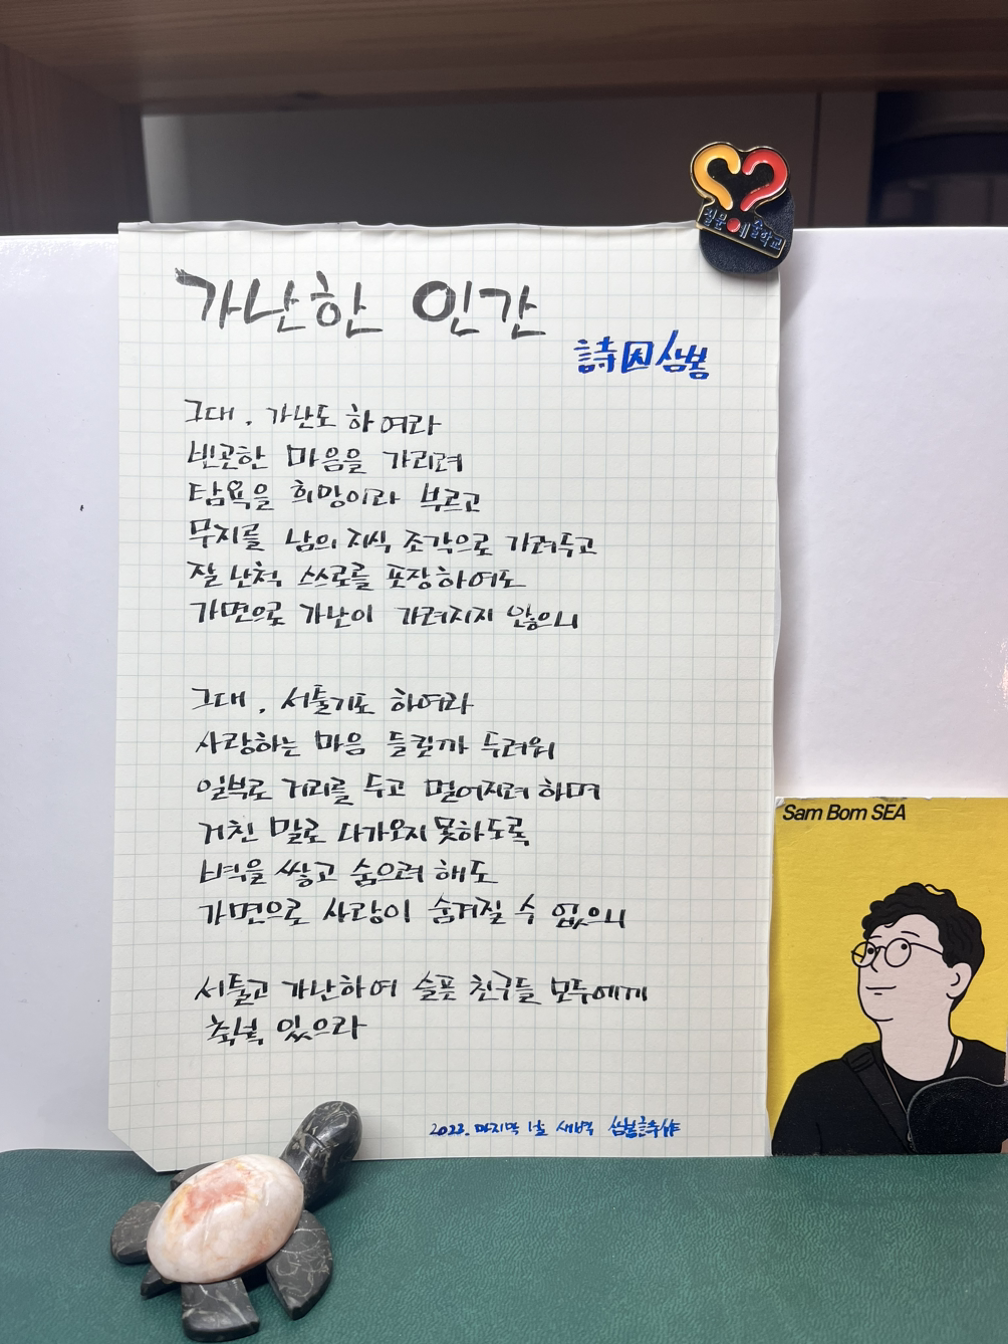 가난한 인간
詩囚삼봄
그대, 가난도 하여라
빈곤한 마음을 가리려
탐욕을 희망이라 부르고
무지를 남의 지식 조각으로 가려두고
잘난척 스스로를 포장하여도
가면으로 가난이 가려지지 않으니
그대, 서툴기도 하여라
사랑하는 마음 들킬까 두려워
일부로 거리를 두고 멀어지려 하며
거친 말로 다가오지 못하도록
벽을 쌓고 숨으려 해도
가면으로 사랑이 숨겨질 수 없으니
서툴고 가난하여 슬픈 친구들 모두에게
축복 있으라
2023. 마지막 날 새벽 삼봄詩作
질문예술학교
Sam Bom SEA